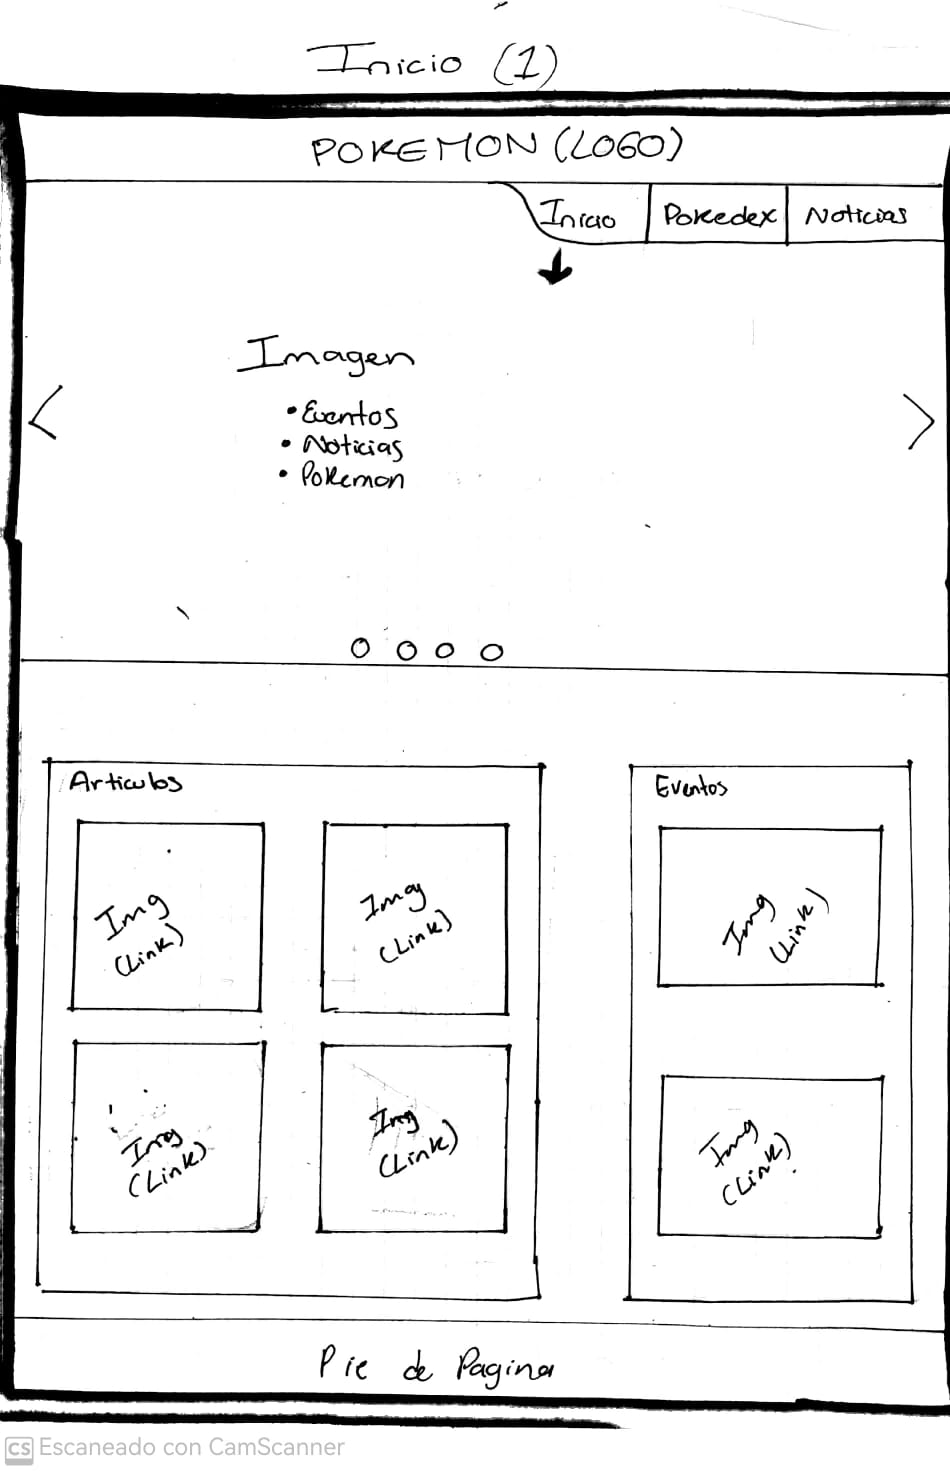 Inicio (1)
POKEMON (LOGO)
Inicio
Pokedex
Noticias
Imagen
• Eventos
• Noticias
• Pokemon
Articulos
Img
(Link)
Img
(Link)
Img
(Link)
Img
(Link)
Eventos
Img
(Link)
Img
(Link)
Pie de Pagina
CS Escaneado con CamScanner